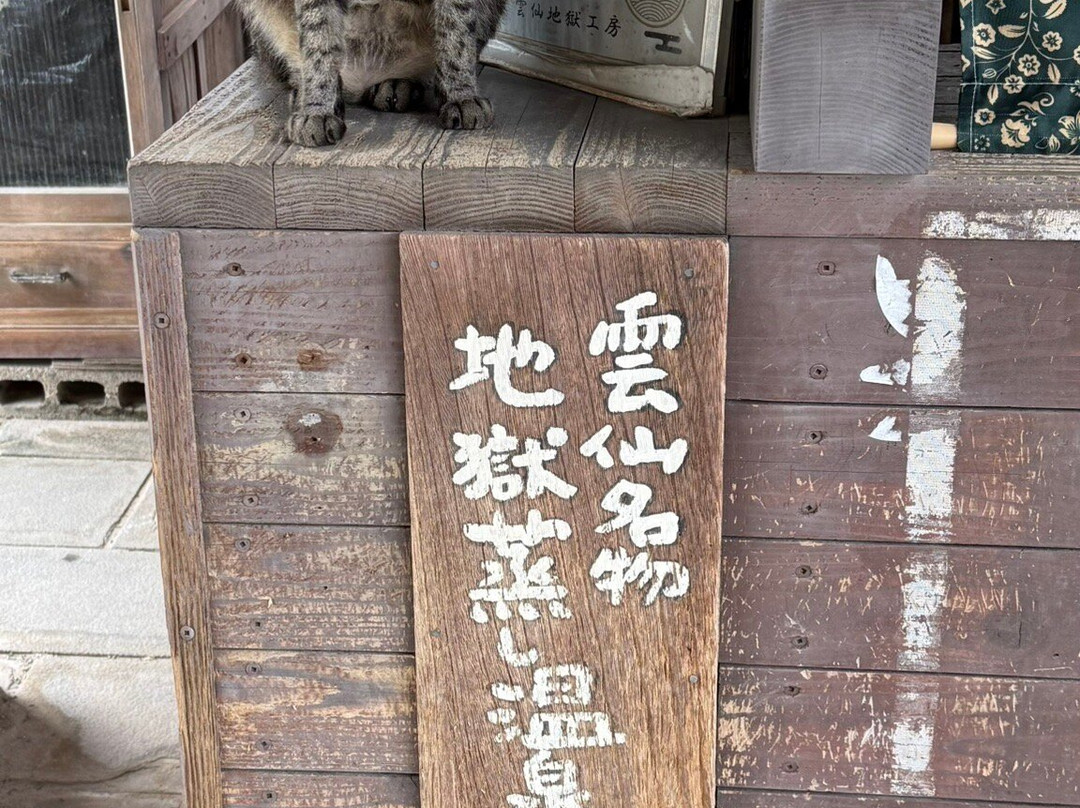 雲仙地獄工房
雲仙名物
地獄蒸し温泉